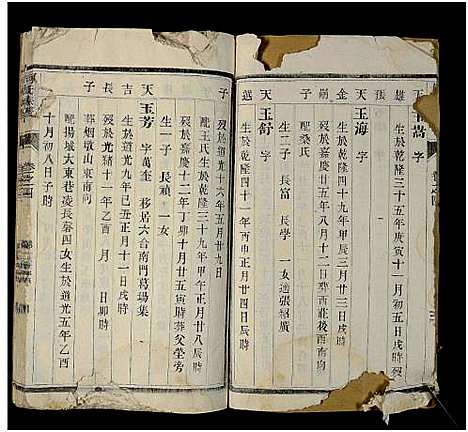 雄
字
生於乾隆三十五年庚寅十一月初五日戌時歿
張
金
天玉海
字
生於乾隆四十九年甲辰正月廿三日戌時
歿於嘉慶廿五年庚辰
配桑氏
生二子 長富 長學 一女適張紹廣
天玉舒
字
生於乾隆四十一年
正月廿四日辰時
子
歿於道光十六年五月廿九日
配王氏生於乾隆三十九年甲午正月廿八辰時
歿於嘉慶十二年丁卯十月廿五寅時葬父塋旁
生一子 長禎 一女
天玉芳
字萬奎 移居六合南門葛塲集
吉
生於道光九年己丑正月十一日戌時
長
歿於光緒十一年乙酉 月 日卯時
葬烟墩山東南向
子
配揚城大東巷凌長春四女生於道光五年乙酉
十月初八日子時